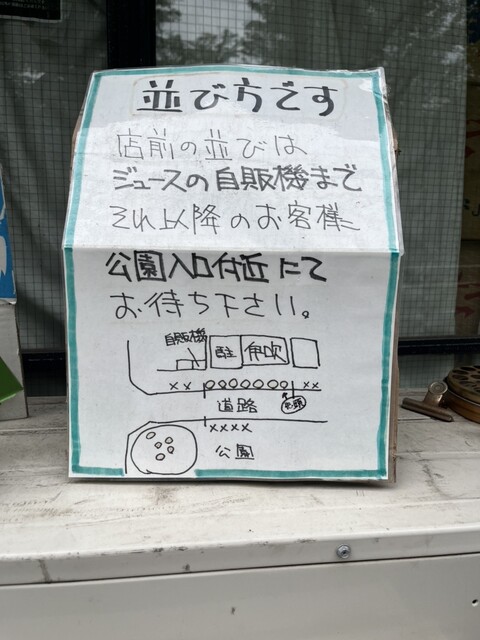 並び方です
店前の並びは
ジュースの自販機まで
それ以降のお客様
公園入口付近にて
お待ち下さい。
自販機
駐 伊吹
×× ○○○○○○○ ××
道路 先頭
××××
公園